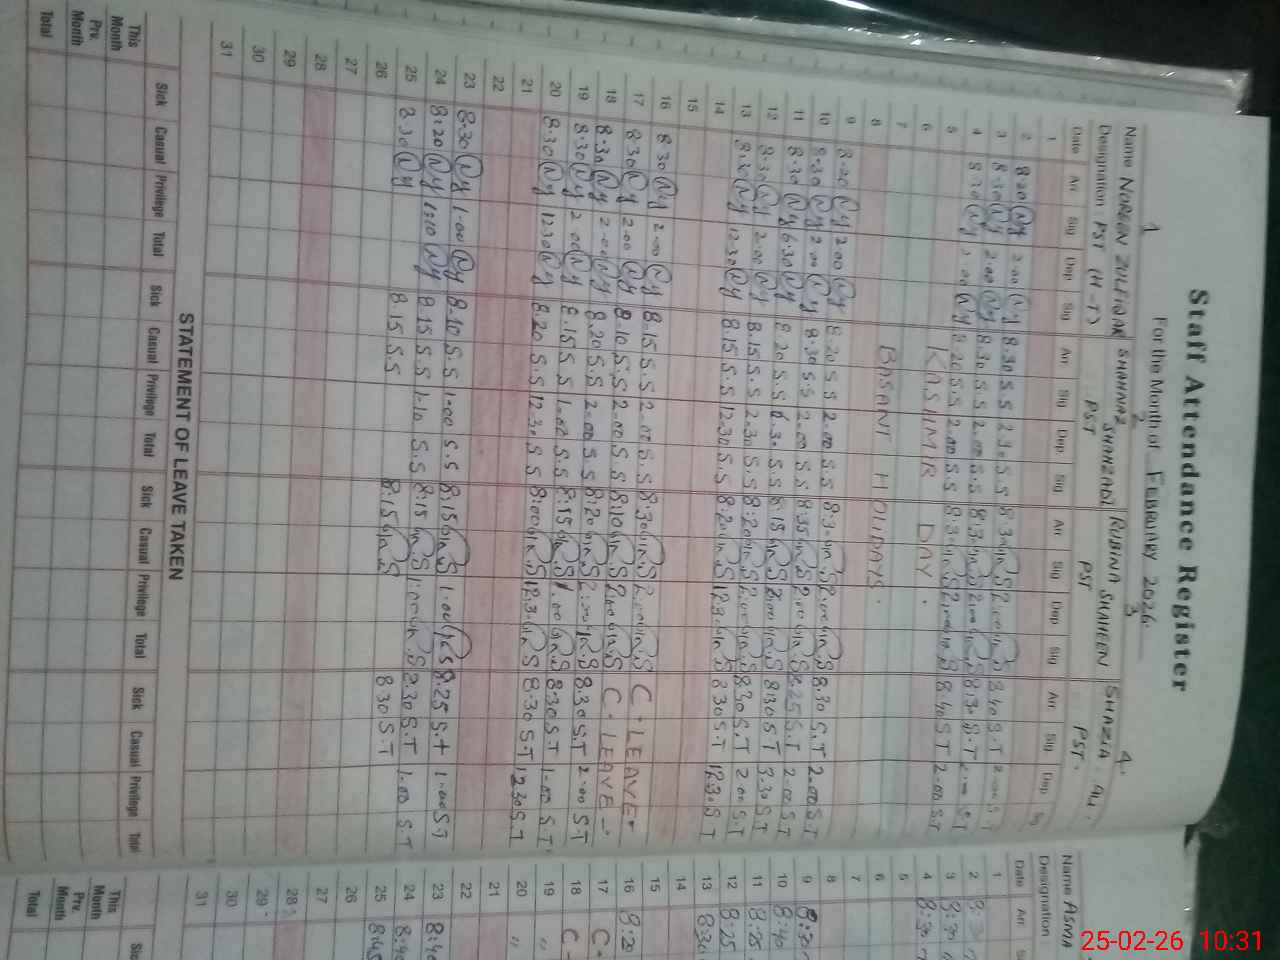 Staff Attendance Register
For the Month of FEBRUARY 2026.
1 2 3 4.
Name NOREEN ZULFIQAR SHAHNAZ SHAHZADI RUBINA SHAHEEN SHAZIA
Designation PST (H-T) PST PST PST
Date Arr Sig Dep Sig Arr Sig Dep Sig Arr Sig Dep Sig Arr Sig Dep Sig
1
2 8:20 2:00 8:30 S.S 2:30 S.S 8:30 2:00 8:40 S.T 2:00 S.T
3 8:30 2:00 8:30 S.S 2:00 S.S 8:30 2:00 8:30 S.T S.T
4 8:30 2:00 8:20 S.S 2:00 S.S 8:30 2:00 8:40 S.T 2:00 S.T
5 KASHMIR DAY.
6
7 BASANT HOLIDAYS.
8
9 8:20 2:00 8:20 S.S 2:00 S.S 8:30 2:00 8:30 S.T 2:00 S.T
10 8:30 2:00 8:30 S.S 2:00 S.S 8:35 2:00 8:25 S.T 2:00 S.T
11 8:30 6:30 8:20 S.S 6:30 S.S 8:15 2:00 8:30 S.T 3:30 S.T
12 8:30 2:00 8:15 S.S 2:30 S.S 8:20 2:00 8:30 S.T 2:00 S.T
13 8:30 12:30 8:15 S.S 12:30 S.S 8:20 12:30 8:30 S.T 12:30 S.T
14
15
16 8:30 2:00 8:15 S.S 2:00 S.S 8:30 2:00 C. LEAVE
17 8:30 2:00 8:10 S.S 2:00 S.S 8:10 2:00 C. LEAVE
18 8:30 2:00 8:20 S.S 2:00 S.S 8:20 2:00 8:30 S.T 2:00 S.T
19 8:30 2:00 8:15 S.S 1:00 S.S 8:15 1:00 8:30 S.T 1:00 S.T
20 8:30 12:30 8:20 S.S 12:30 S.S 8:00 12:30 8:30 S.T 12:30 S.T
21
22
23 8:30 1:00 8:10 S.S 1:00 S.S 8:15 1:00 8:25 S.T 1:00 S.T
24 8:20 1:10 8:15 S.S 1:10 S.S 8:15 1:00 8:30 S.T 1:00 S.T
25 8:30 8:15 S.S 8:15 8:30 S.T
26
27
28
29
30
31
STATEMENT OF LEAVE TAKEN
Sick Casual Privilege Total Sick Casual Privilege Total Sick Casual Privilege Total Sick Casual Privilege Total
This Month
Prv. Month
Total
Name ASMA
Designation
Date Arr
1
2
3 8:30
4 8:30
5
6
7
8
9 8:30
10 8:40
11 8:25
12 8:25
13 8:30
14
15
16 8:20
17 C
18 C
19 "
20 "
21
22
23 8:40
24 8:40
25 8:45
26
27
28
29
30
31
Sic
This Month
Prv. Month
Total
25-02-26 10:31